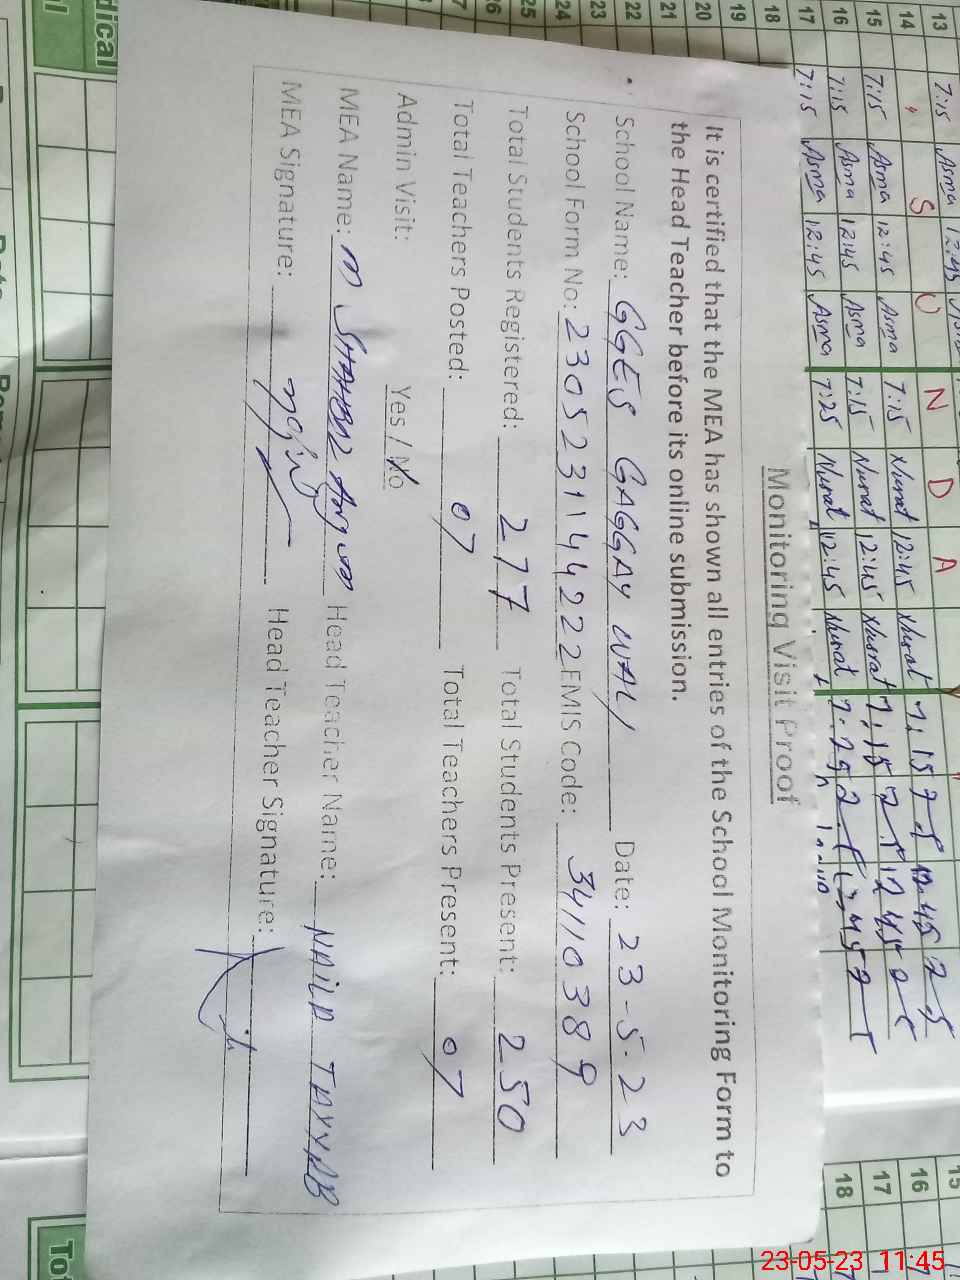 Monitoring Visit Proof
It is certified that the MEA has shown all entries of the School Monitoring Form to
the Head Teacher before its online submission.
School Name: GGES GAGGAY WALI Date: 23-5-23
School Form No: 230523144222 EMIS Code: 34110389
Total Students Registered: 277 Total Students Present: 250
Total Teachers Posted: 07 Total Teachers Present: 07
Admin Visit: Yes / No
MEA Name: M SHAHBAZ Anjum Head Teacher Name: NAILA TAYYAB
MEA Signature: Head Teacher Signature:
13 7:15 Asma 12:45
14 S U N D A
15 7:15 Asma 12:45 Asma 7:15 Nusrat 12:45 Nusrat 7:15
16 7:15 Asma 12:45 Asma 7:15 Nusrat 12:45 Nusrat 7:15
17 7:15 Asma 12:45 Asma 7:25 Nusrat 12:45 Nusrat 7:25
18
19
20
21
22
23
24
25
15
16
17
18
23-05-23 11:45